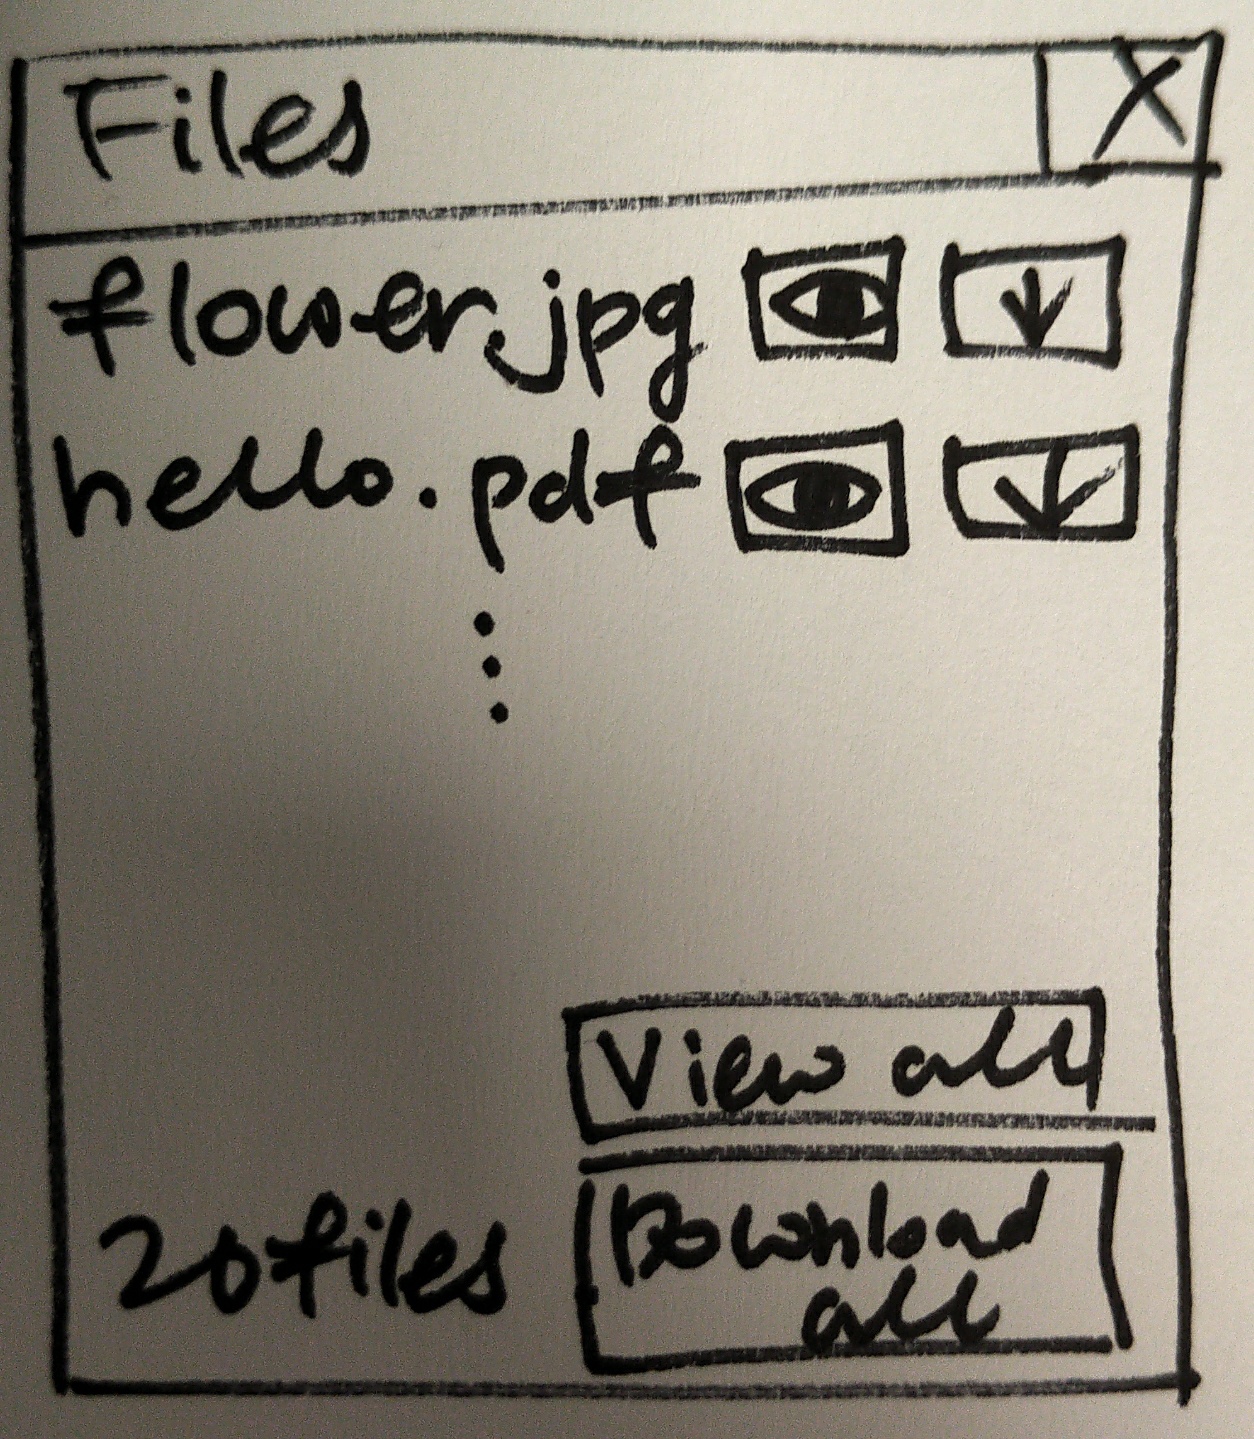 Files X
flower.jpg
hello.pdf
View all
20 files
Download
all